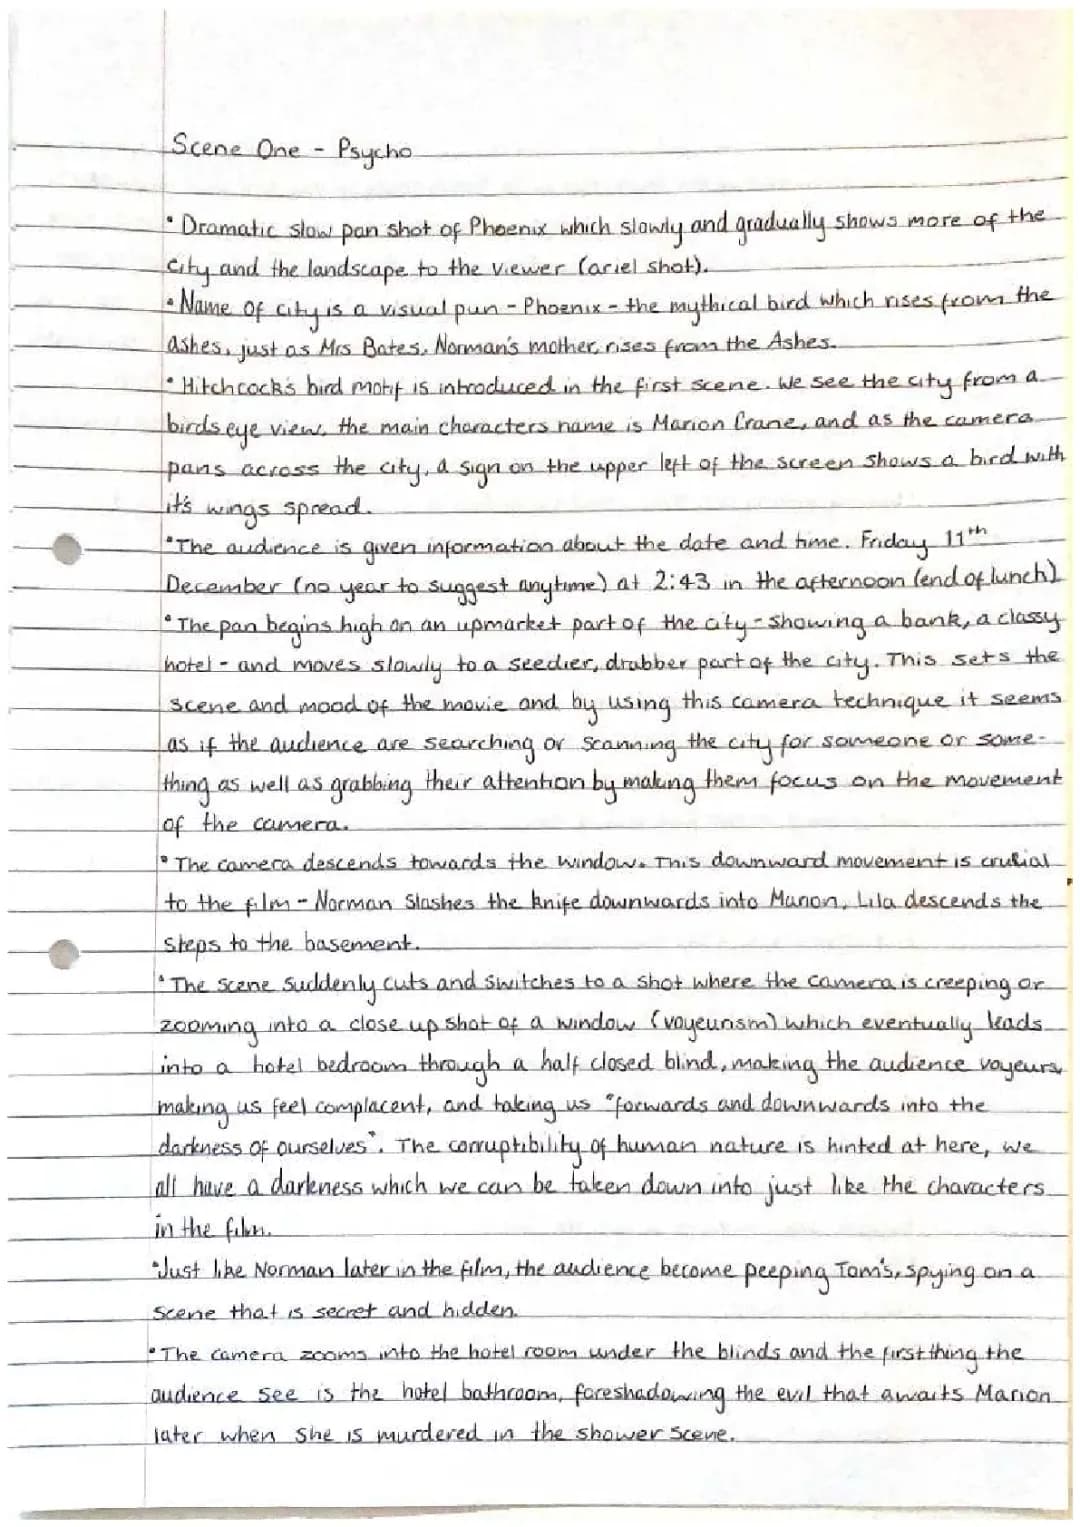 Scene One - Psycho
• Dramatic slow pan shot of Phoenix which slowly and gradually shows more of the
city and the landscape to the viewer (ariel shot).
• Name of city is a visual pun - Phoenix - the mythical bird which rises from the
ashes, just as Mrs Bates, Norman's mother, rises from the Ashes.
• Hitchcock's bird motif is introduced in the first scene. We see the city from a
birds eye view, the main characters name is Marion Crane, and as the camera
pans across the city, a sign on the upper left of the screen shows a bird with
it's wings spread.
• The audience is given information about the date and time. Friday 11th
December (no year to suggest anytime) at 2:43 in the afternoon (end of lunch)
• The pan begins high on an upmarket part of the city - showing a bank, a classy
hotel - and moves slowly to a seedier, drabber part of the city. This sets the
scene and mood of the movie and by using this camera technique it seems
as if the audience are searching or scanning the city for someone or some-
thing as well as grabbing their attention by making them focus on the movement
of the camera.
• The camera descends towards the window. This downward movement is crucial
to the film - Norman slashes the knife downwards into Marion, Lila descends the
steps to the basement.
• The scene suddenly cuts and switches to a shot where the camera is creeping or
zooming into a close up shot of a window (voyeurism) which eventually leads
into a hotel bedroom through a half closed blind, making the audience voyeurs,
making us feel complacent, and taking us "forwards and downwards into the
darkness of ourselves". The corruptibility of human nature is hinted at here, we
all have a darkness which we can be taken down into just like the characters
in the film.
• Just like Norman later in the film, the audience become peeping Tom's, spying on a
scene that is secret and hidden.
• The camera zooms into the hotel room under the blinds and the first thing the
audience see is the hotel bathroom, foreshadowing the evil that awaits Marion
later when she is murdered in the shower scene.